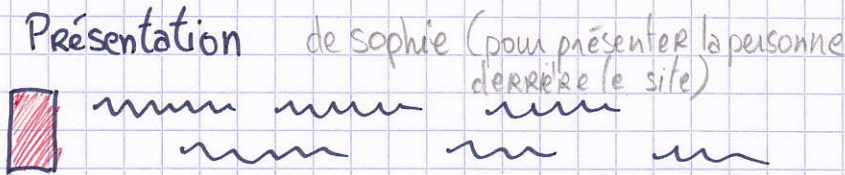 Présentation de sophie (pour présenter la personne
derrière le site)